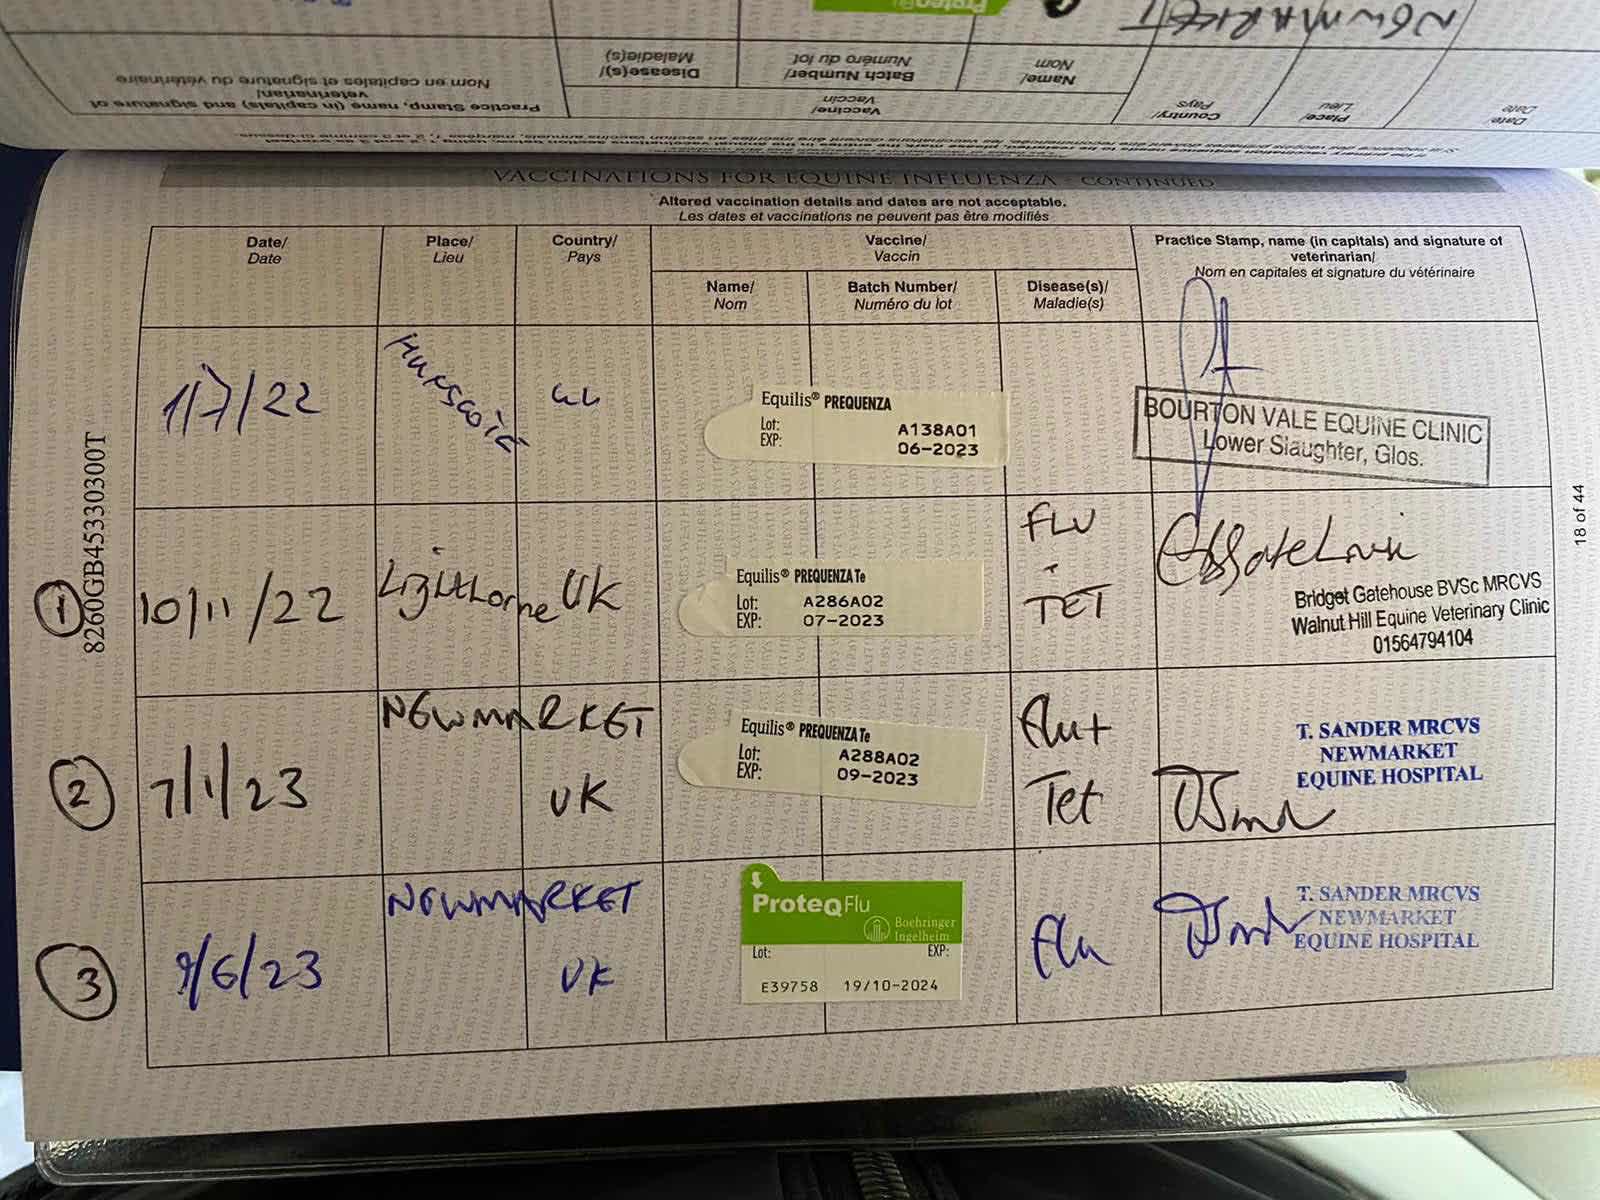 NEWMARKET
ProteqFlu
Date/
Date
Place/
Lieu
Country/
Pays
Vaccine/
Vaccin
Name/
Nom
Batch Number/
Numéro du lot
Disease(s)/
Maladie(s)
Practice Stamp, name (in capitals) and signature of
veterinarian/
Nom en capitales et signature du vétérinaire
VACCINATIONS FOR EQUINE INFLUENZA CONTINUED
Altered vaccination details and dates are not acceptable.
Les dates et vaccinations ne peuvent pas être modifiés
Date/
Date
Place/
Lieu
Country/
Pays
Vaccine/
Vaccin
Name/
Nom
Batch Number/
Numéro du lot
Disease(s)/
Maladie(s)
Practice Stamp, name (in capitals) and signature of
veterinarian/
Nom en capitales et signature du vétérinaire
1/7/22
Equilis® PREQUENZA
Lot: A138A01
EXP: 06-2023
BOURTON VALE EQUINE CLINIC
Lower Slaughter, Glos.
1
10/11/22
Lighthorne
UK
Equilis® PREQUENZA Te
Lot: A286A02
EXP: 07-2023
FLU
TET
Bridget Gatehouse BVSc MRCVS
Walnut Hill Equine Veterinary Clinic
01564794104
2
7/1/23
NEWMARKET
UK
Equilis® PREQUENZA Te
Lot: A288A02
EXP: 09-2023
Flu+
Tet
T. SANDER MRCVS
NEWMARKET
EQUINE HOSPITAL
3
9/6/23
NEWMARKET
UK
ProteqFlu
Boehringer
Ingelheim
Lot: EXP:
E39758 19/10-2024
Flu
T. SANDER MRCVS
NEWMARKET
EQUINE HOSPITAL
8260GB45330300T
18 of 44